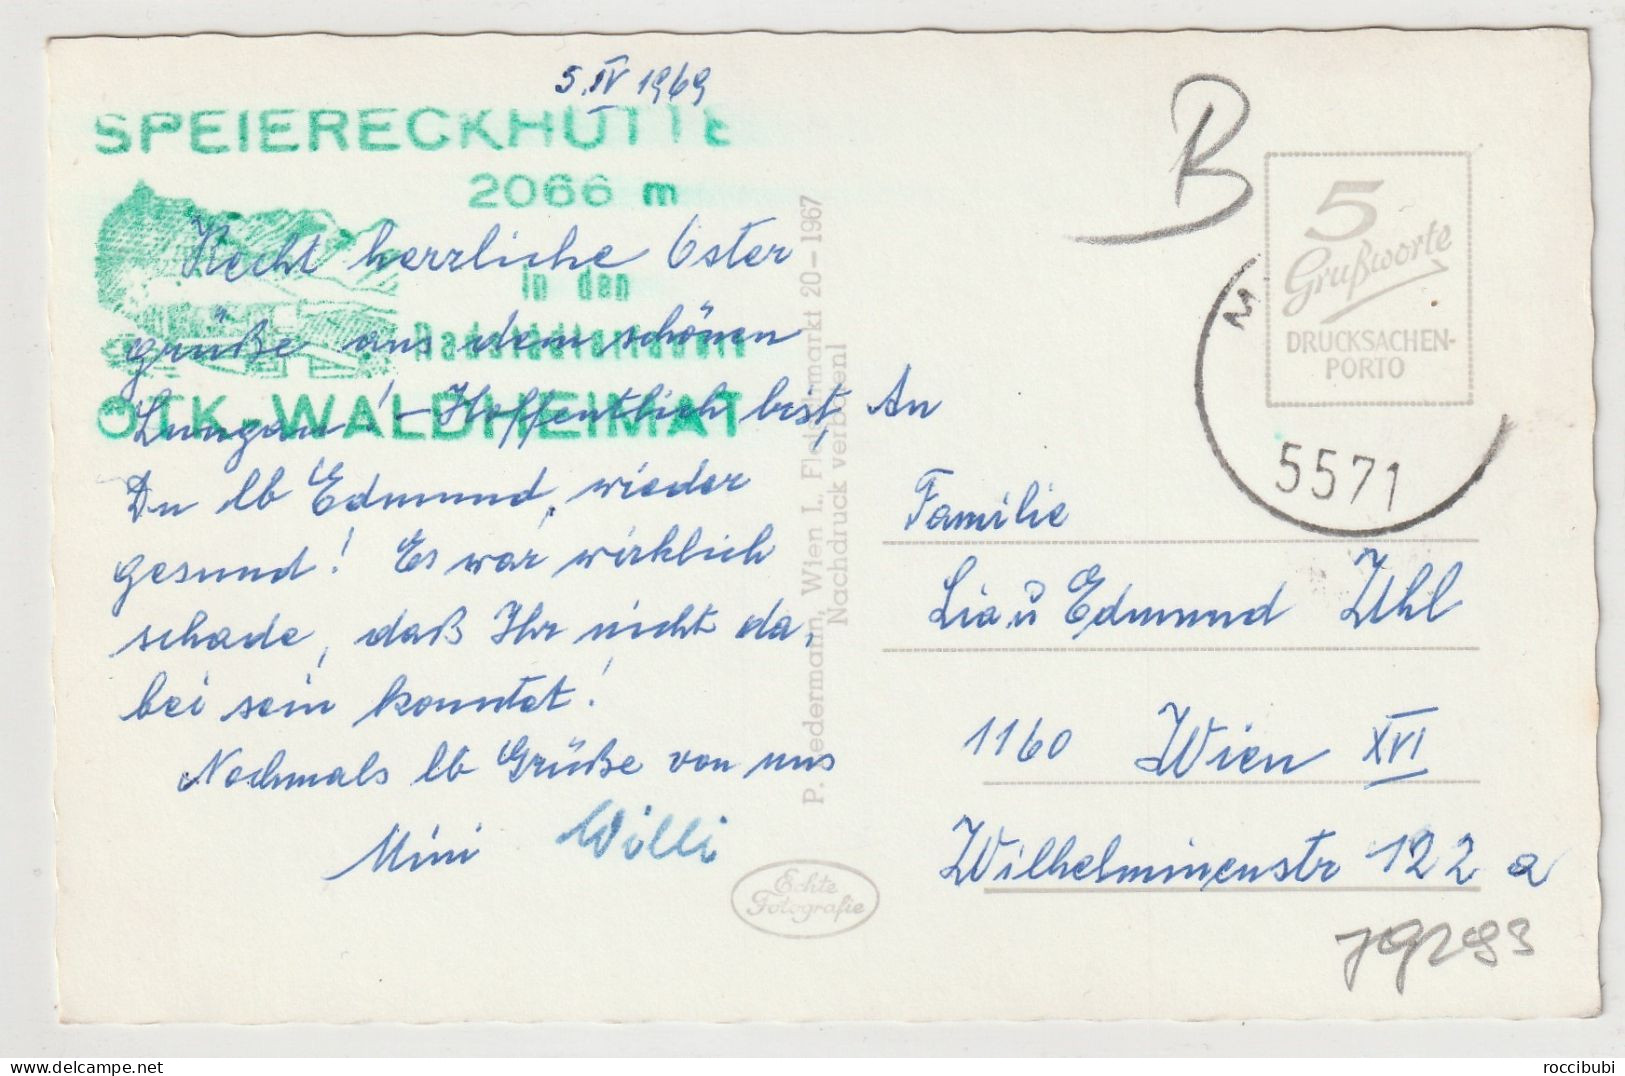 5. IV 1969
SPEIERECKHÜTTE
2066 m
in den
Radstädtertauern
ÖTK.-WALDHEIMAT
Recht herrliche Oster
grüße aus dem schönen
Lungau! - Hoffentlich bist
Du lb Edmund, wieder
gesund! Es war wirklich
schade, daß Ihr nicht da,
bei sein konntet!
Nochmals lb Grüße von uns
Mini Willi
P. Ledermann, Wien I., Fleischmarkt 20-1967
Nachdruck verboten!
Echte
Fotografie
B
5
Grußworte
DRUCKSACHEN-
PORTO
5571
An
Familie
Lia u Edmund Uhl
1160 Wien XVI
Wilhelminenstr 122 a
roccibubi